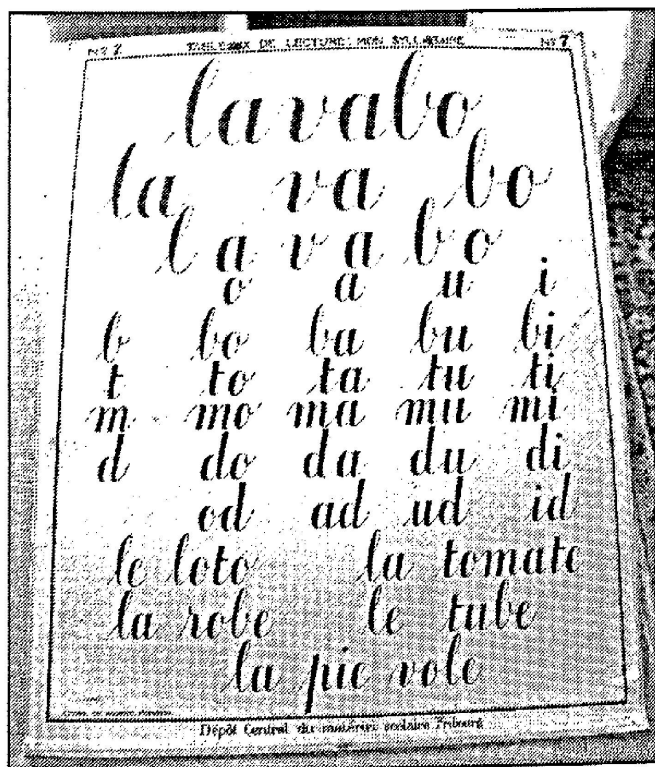 Nº 7 TABLEAUX DE LECTURE: MON SYLLABAIRE Nº 7
lavabo
la va bo
l a v a b o
o a u i
b bo ba bu bi
t to ta tu ti
m mo ma mu mi
d do da du di
od ad ud id
le loto la tomate
la robe le tube
la pie vole
Dépôt Central du matériel scolaire Fribourg